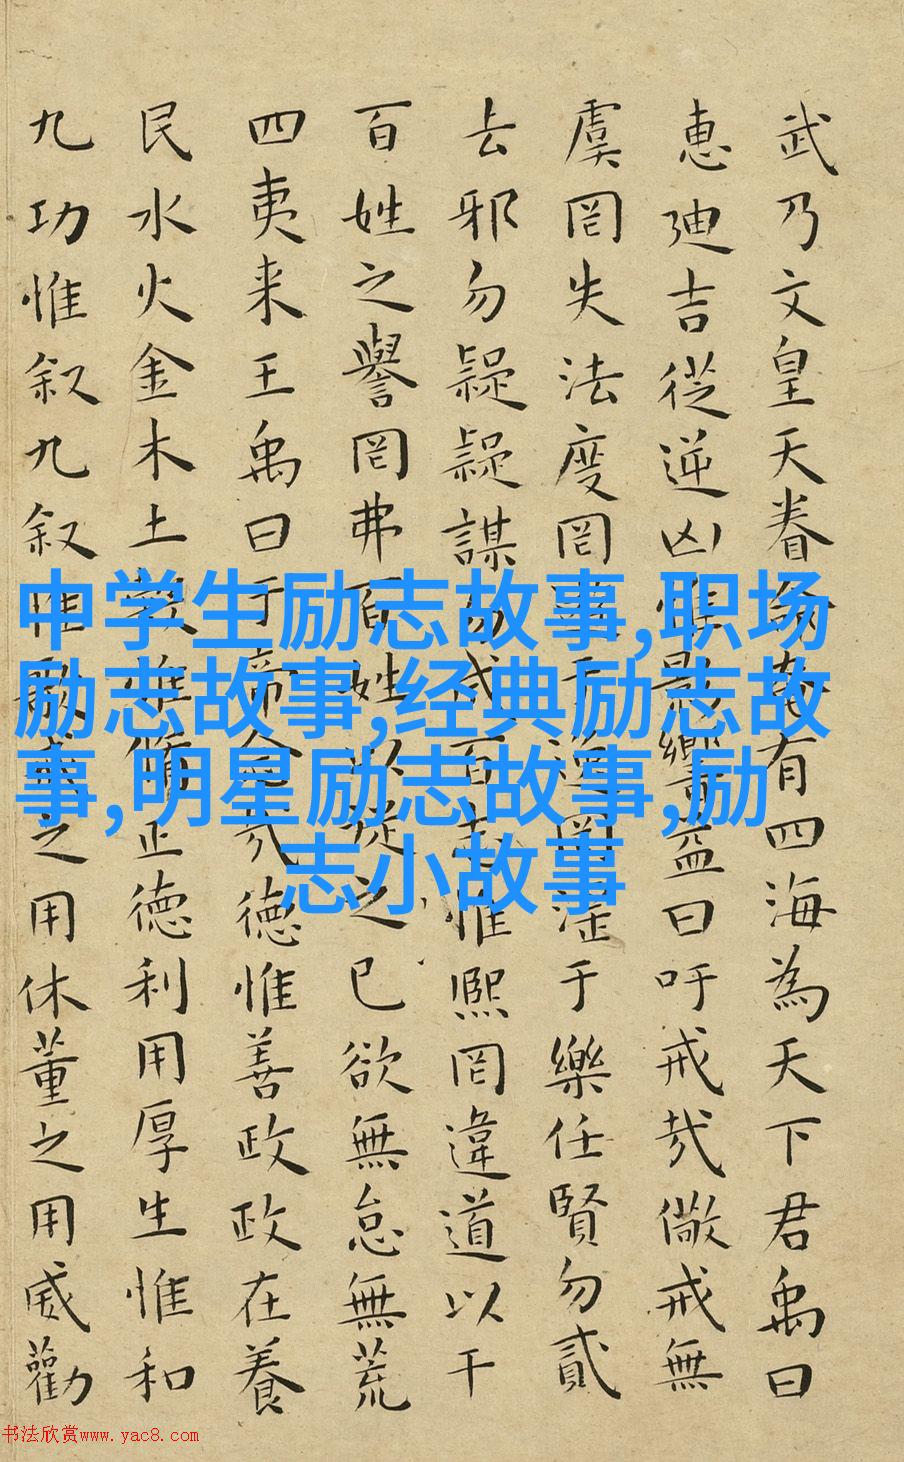 武乃文皇天眷命奄有四海為天下君禹曰
惠廸吉從逆凶惟影響益曰吁戒哉儆戒無
虞罔失法度罔遊于逸罔淫于樂任賢勿貳
去邪勿疑疑謀勿成百志惟熙罔違道以干
百姓之譽罔弗百姓以從之已欲無怠無荒
四夷来王禹曰于帝念哉德惟善政政在養
民水火金木土穀惟脩正德利用厚生惟和
九功惟叙九叙惟歌戒之用休董之用威勸
中学生励志故事,职场
励志故事,经典励志故
事,明星励志故事,励
志小故事
书法欣赏www.yac8.com